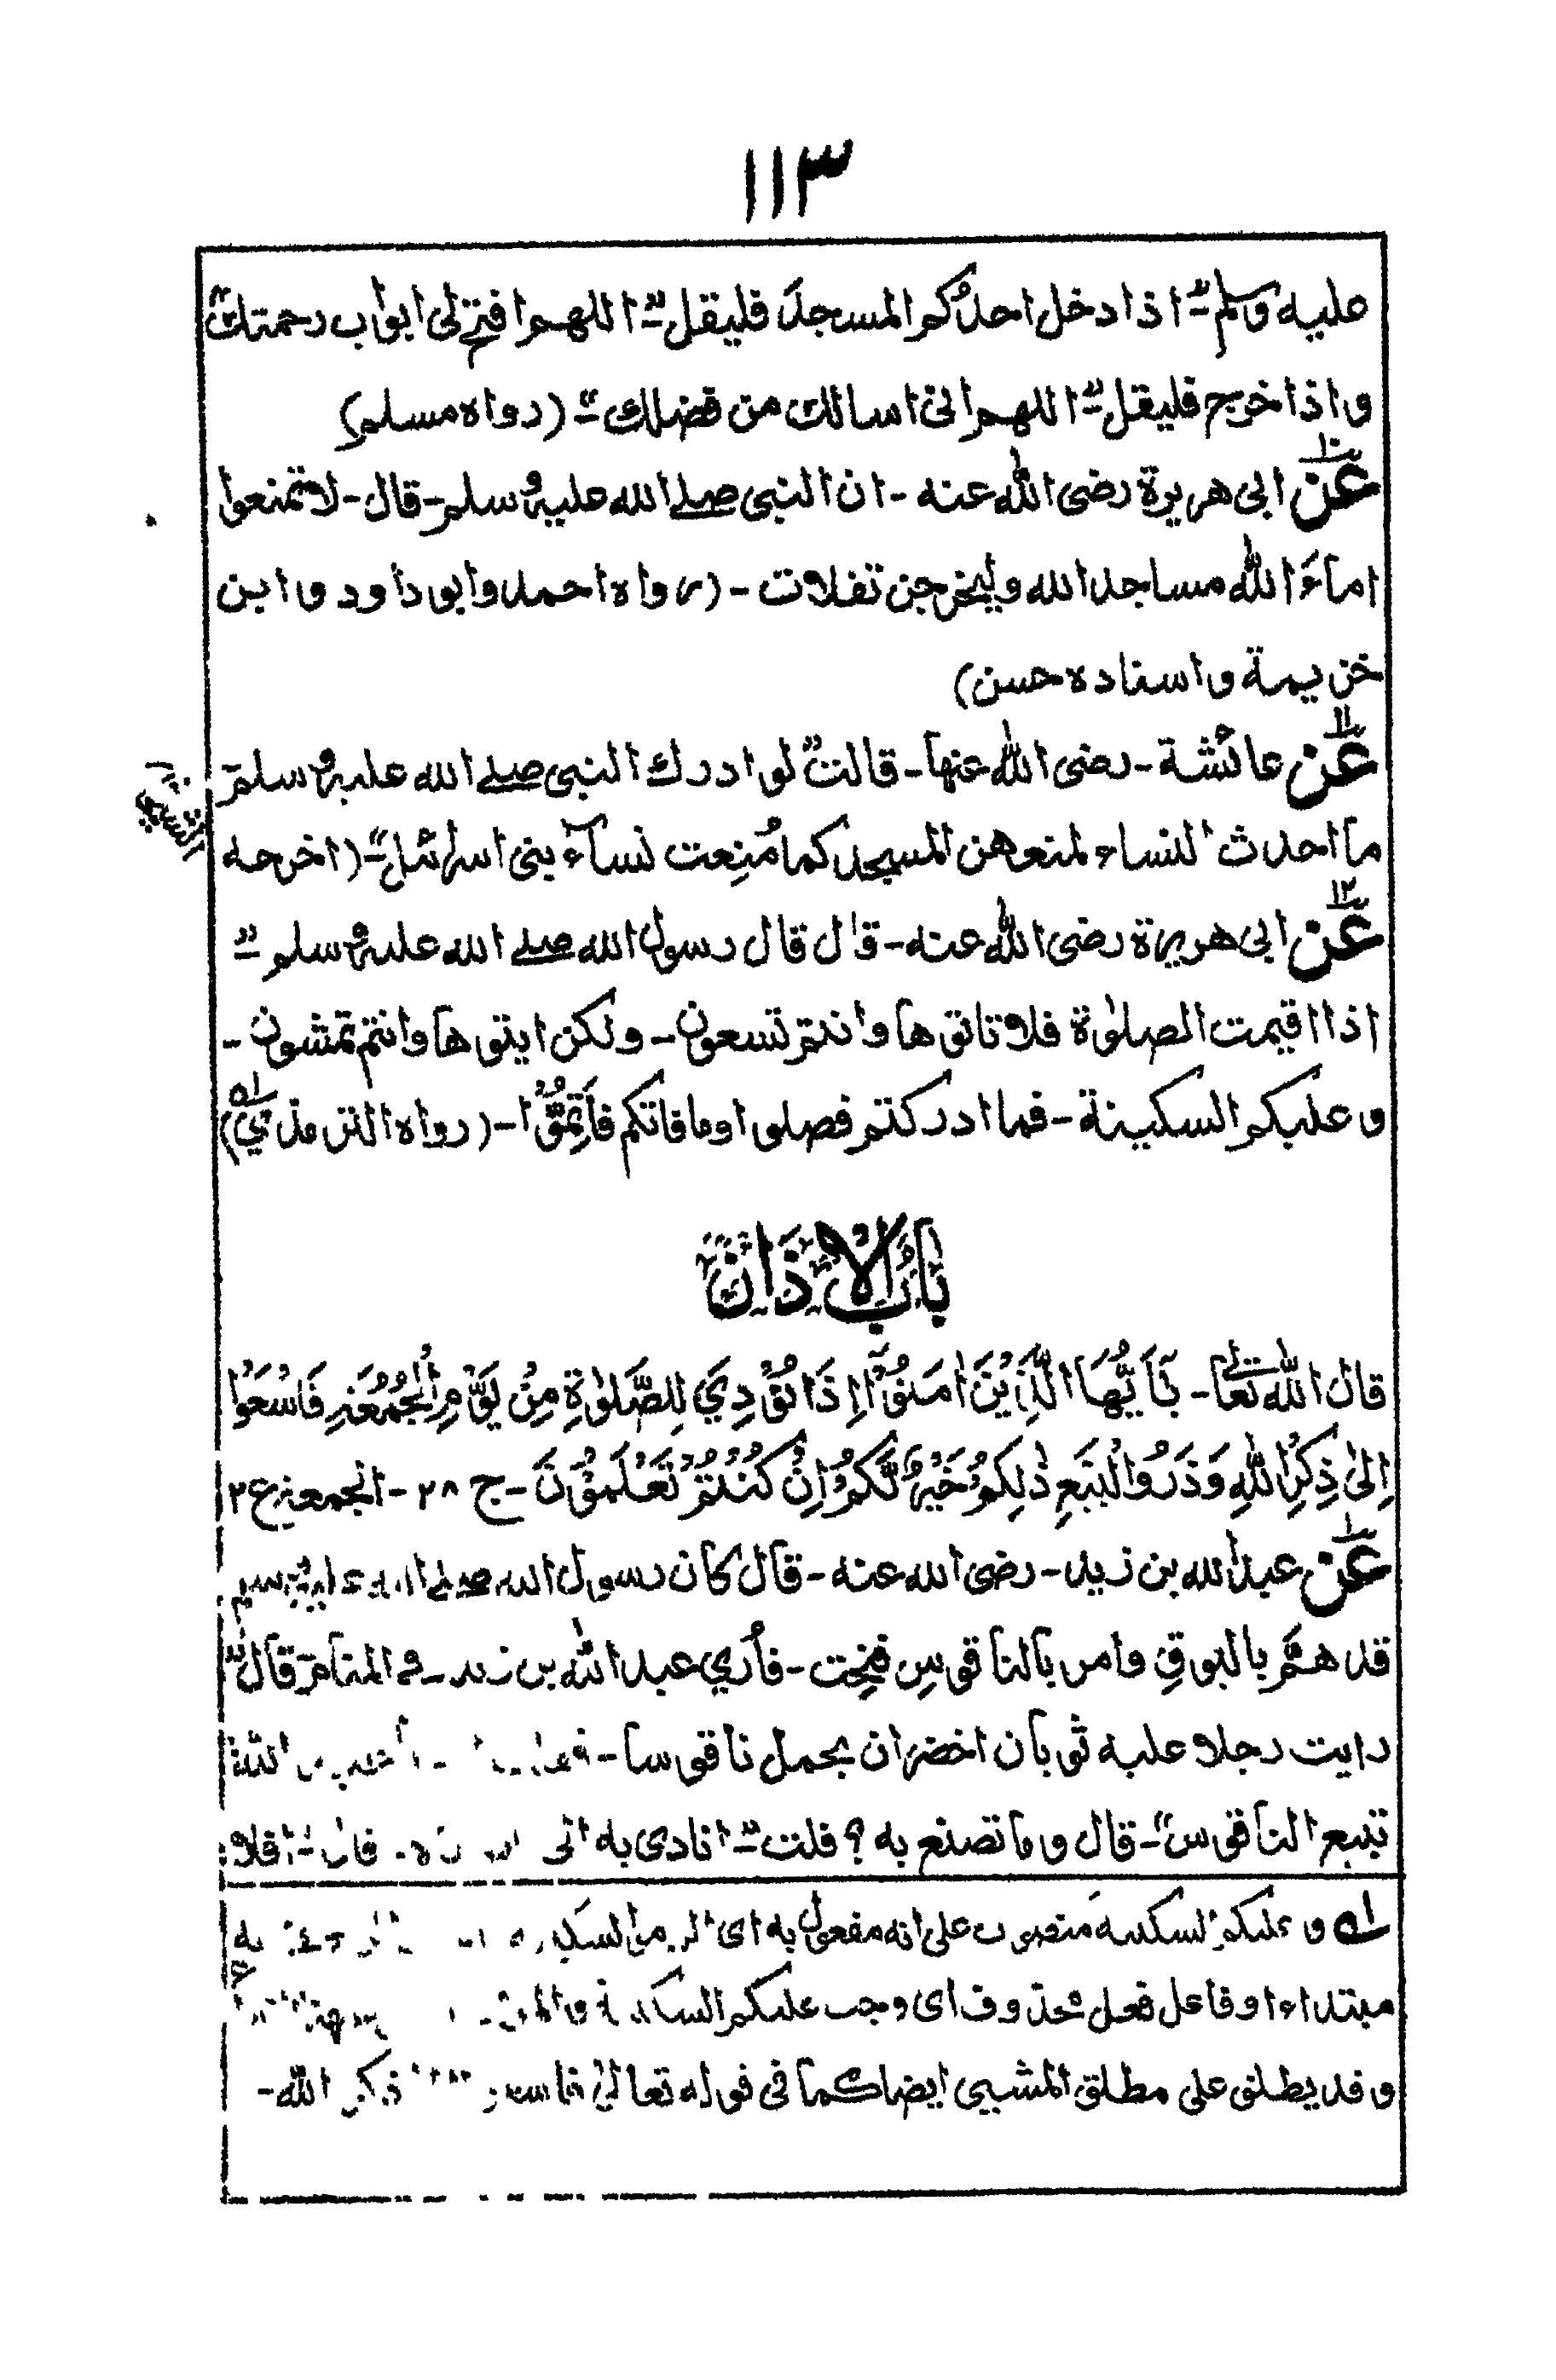 ١١٣
عليه وسلم "اذا دخل احدُكم المسجدَ فليقل "اللهم افتح لى ابواب رحمتك"
واذا خرج فليقل "اللهم انى اسالك من فضلك" - (رواه مسلم)
١٠ عَن ابى هريرة رضى الله عنه - ان النبى صلے الله عليه وسلم - قال - لا تمنعوا
اماءَ الله مساجد الله وليخرجن تفلات - (رواه احمد وابو داود وابن
خزيمة واسناده حسن)
١١ عَن عائشة - رضى الله عنها - قالت "لو ادرك النبى صلے الله عليه وسلم
ما احدث النساء لمنعهن المسجد كما مُنِعت نساءُ بنى اسرائيل" - (اخرجه
الشيخان)
١٢ عَن ابى هريرة رضى الله عنه - قال قال رسول الله صلے الله عليه وسلم "
اذا اقيمت الصلوٰة فلا تاتوها وانتم تسعون - ولكن ايتوها وانتم تمشون -
وعليكم السكينة - فما ادركتم فصلوا وما فاتكم فَاَتِمُّوْا - (رواه الترمذي) ١ه
بَابُ الْاَذَانِ
قال الله تعالىٰ - يٰٓاَيُّهَا الَّذِيْنَ اٰمَنُوْٓا اِذَا نُوْدِيَ لِلصَّلٰوةِ مِنْ يَّوْمِ الْجُمُعَةِ فَاسْعَوْا
اِلىٰ ذِكْرِ اللهِ وَذَرُوا الْبَيْعَ ذٰلِكُمْ خَيْرٌ لَّكُمْ اِنْ كُنْتُمْ تَعْلَمُوْنَ - ج ٢٨ - الجمعة ع ٢
١ عَن عبد الله بن زيد - رضى الله عنه - قال كان رسول الله صلے الله عليه وسلم
قد همّ بالبوقِ وامر بالناقوسِ فنحت - فأُري عبد الله بن زيد - فى المنام قال "
رايت رجلا عليه ثوبان اخضران يحمل ناقوسا - الله
تبيع الناقوس" - قال وما تصنع به ؟ قلت "انادى به الى قال "افلا
١ه وعليكم السكينه منصوب على انه مفعول به اى الزموا السكينة
مبتداء او فاعل فعل محذوف اى وجب عليكم السكينة
وقد يطلق على مطلق المشيى ايضا كما فى قوله تعالىٰ فاسعوا الىٰ ذكر الله -